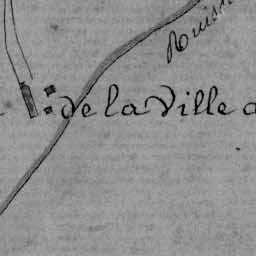 Ruis
de la Ville